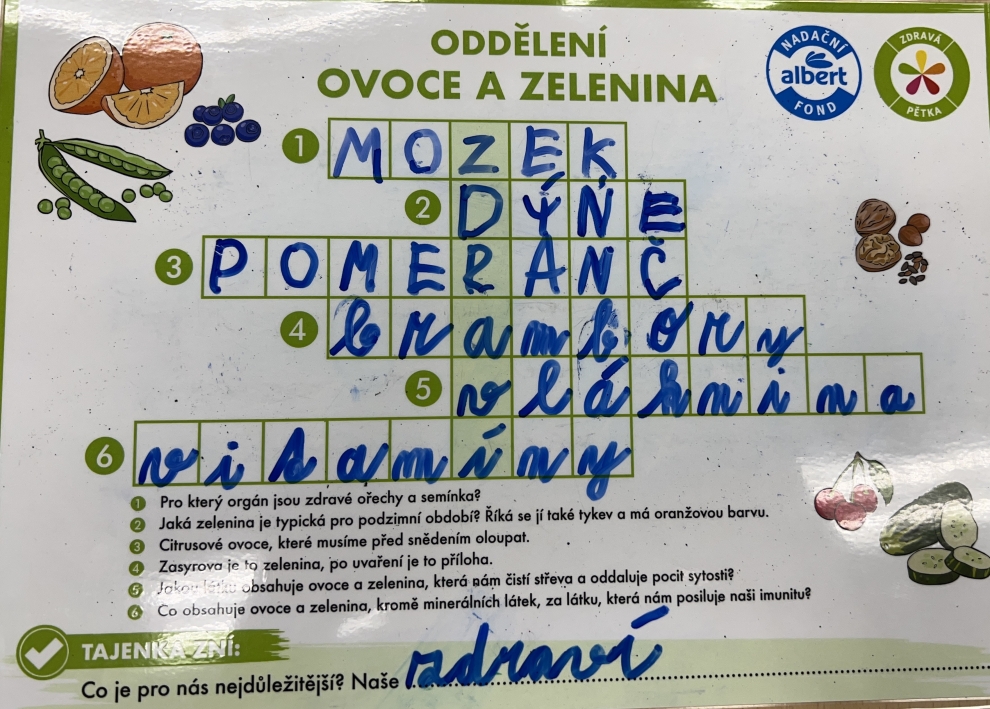 ODDĚLENÍ
OVOCE A ZELENINA
NADAČNÍ
albert
FOND
ZDRAVÁ
PĚTKA
1 MOZEK
2 DÝNE
3 POMERANČ
4 brambory
5 vláknina
6 vitamíny
1 Pro který orgán jsou zdravé ořechy a semínka?
2 Jaká zelenina je typická pro podzimní období? Říká se jí také tykev a má oranžovou barvu.
3 Citrusové ovoce, které musíme před snědením oloupat.
4 Zasyrova je to zelenina, po uvaření je to příloha.
5 Jakou látku obsahuje ovoce a zelenina, která nám čistí střeva a oddaluje pocit sytosti?
6 Co obsahuje ovoce a zelenina, kromě minerálních látek, za látku, která nám posiluje naši imunitu?
TAJENKA ZNÍ:
Co je pro nás nejdůležitější? Naše zdraví